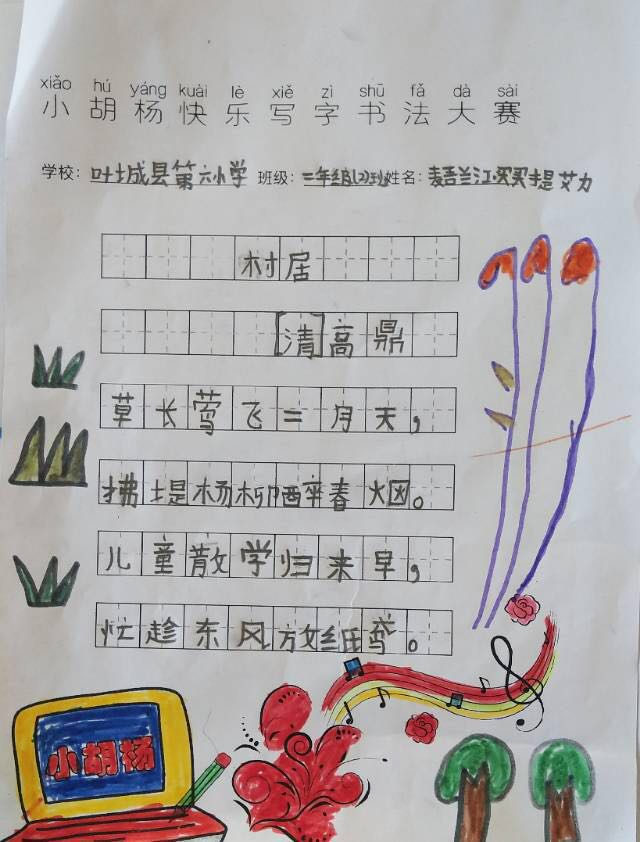 xiǎo hú yáng kuài lè xiě zì shū fǎ dà sài
小胡杨快乐写字书法大赛
学校：叶城县第六小学 班级：二年级(2)班 姓名：麦吾兰江·买买提艾力
村居
[清]高鼎
草长莺飞二月天，
拂堤杨柳醉春烟。
儿童散学归来早，
忙趁东风放纸鸢。
小胡杨